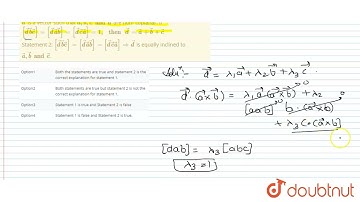 [d⃗b⃗c⃗] = [d⃗a⃗b⃗] = [d⃗c⃗a⃗] = 1, then d⃗ = a⃗ + b⃗ + c⃗
Statement 2: [d⃗b⃗c⃗] = [d⃗a⃗b⃗] = [d⃗c⃗a⃗] ⇒ d⃗ is equally inclined to
a⃗, b⃗ and c⃗.
Option1 Both the statements are true and statement 2 is the
correct explanation for statement 1.
Option2 Both statements are true but statement 2 is not the
correct explanation for statement 1.
Option3 Statement 1 is true and Statement 2 is false
Option4 Statement 1 is false and Statement 2 is true.
d⃗ = λ₁a⃗ + λ₂b⃗ + λ₃c⃗.
d⃗·(a⃗×b⃗) = λ₁a⃗·(a⃗×b⃗) + λ₂
[aab] b·(a⃗×b⃗)
+ λ₃ c·(a⃗×b)
[dab] = λ₃[abc]
λ₃=1
doubtnut